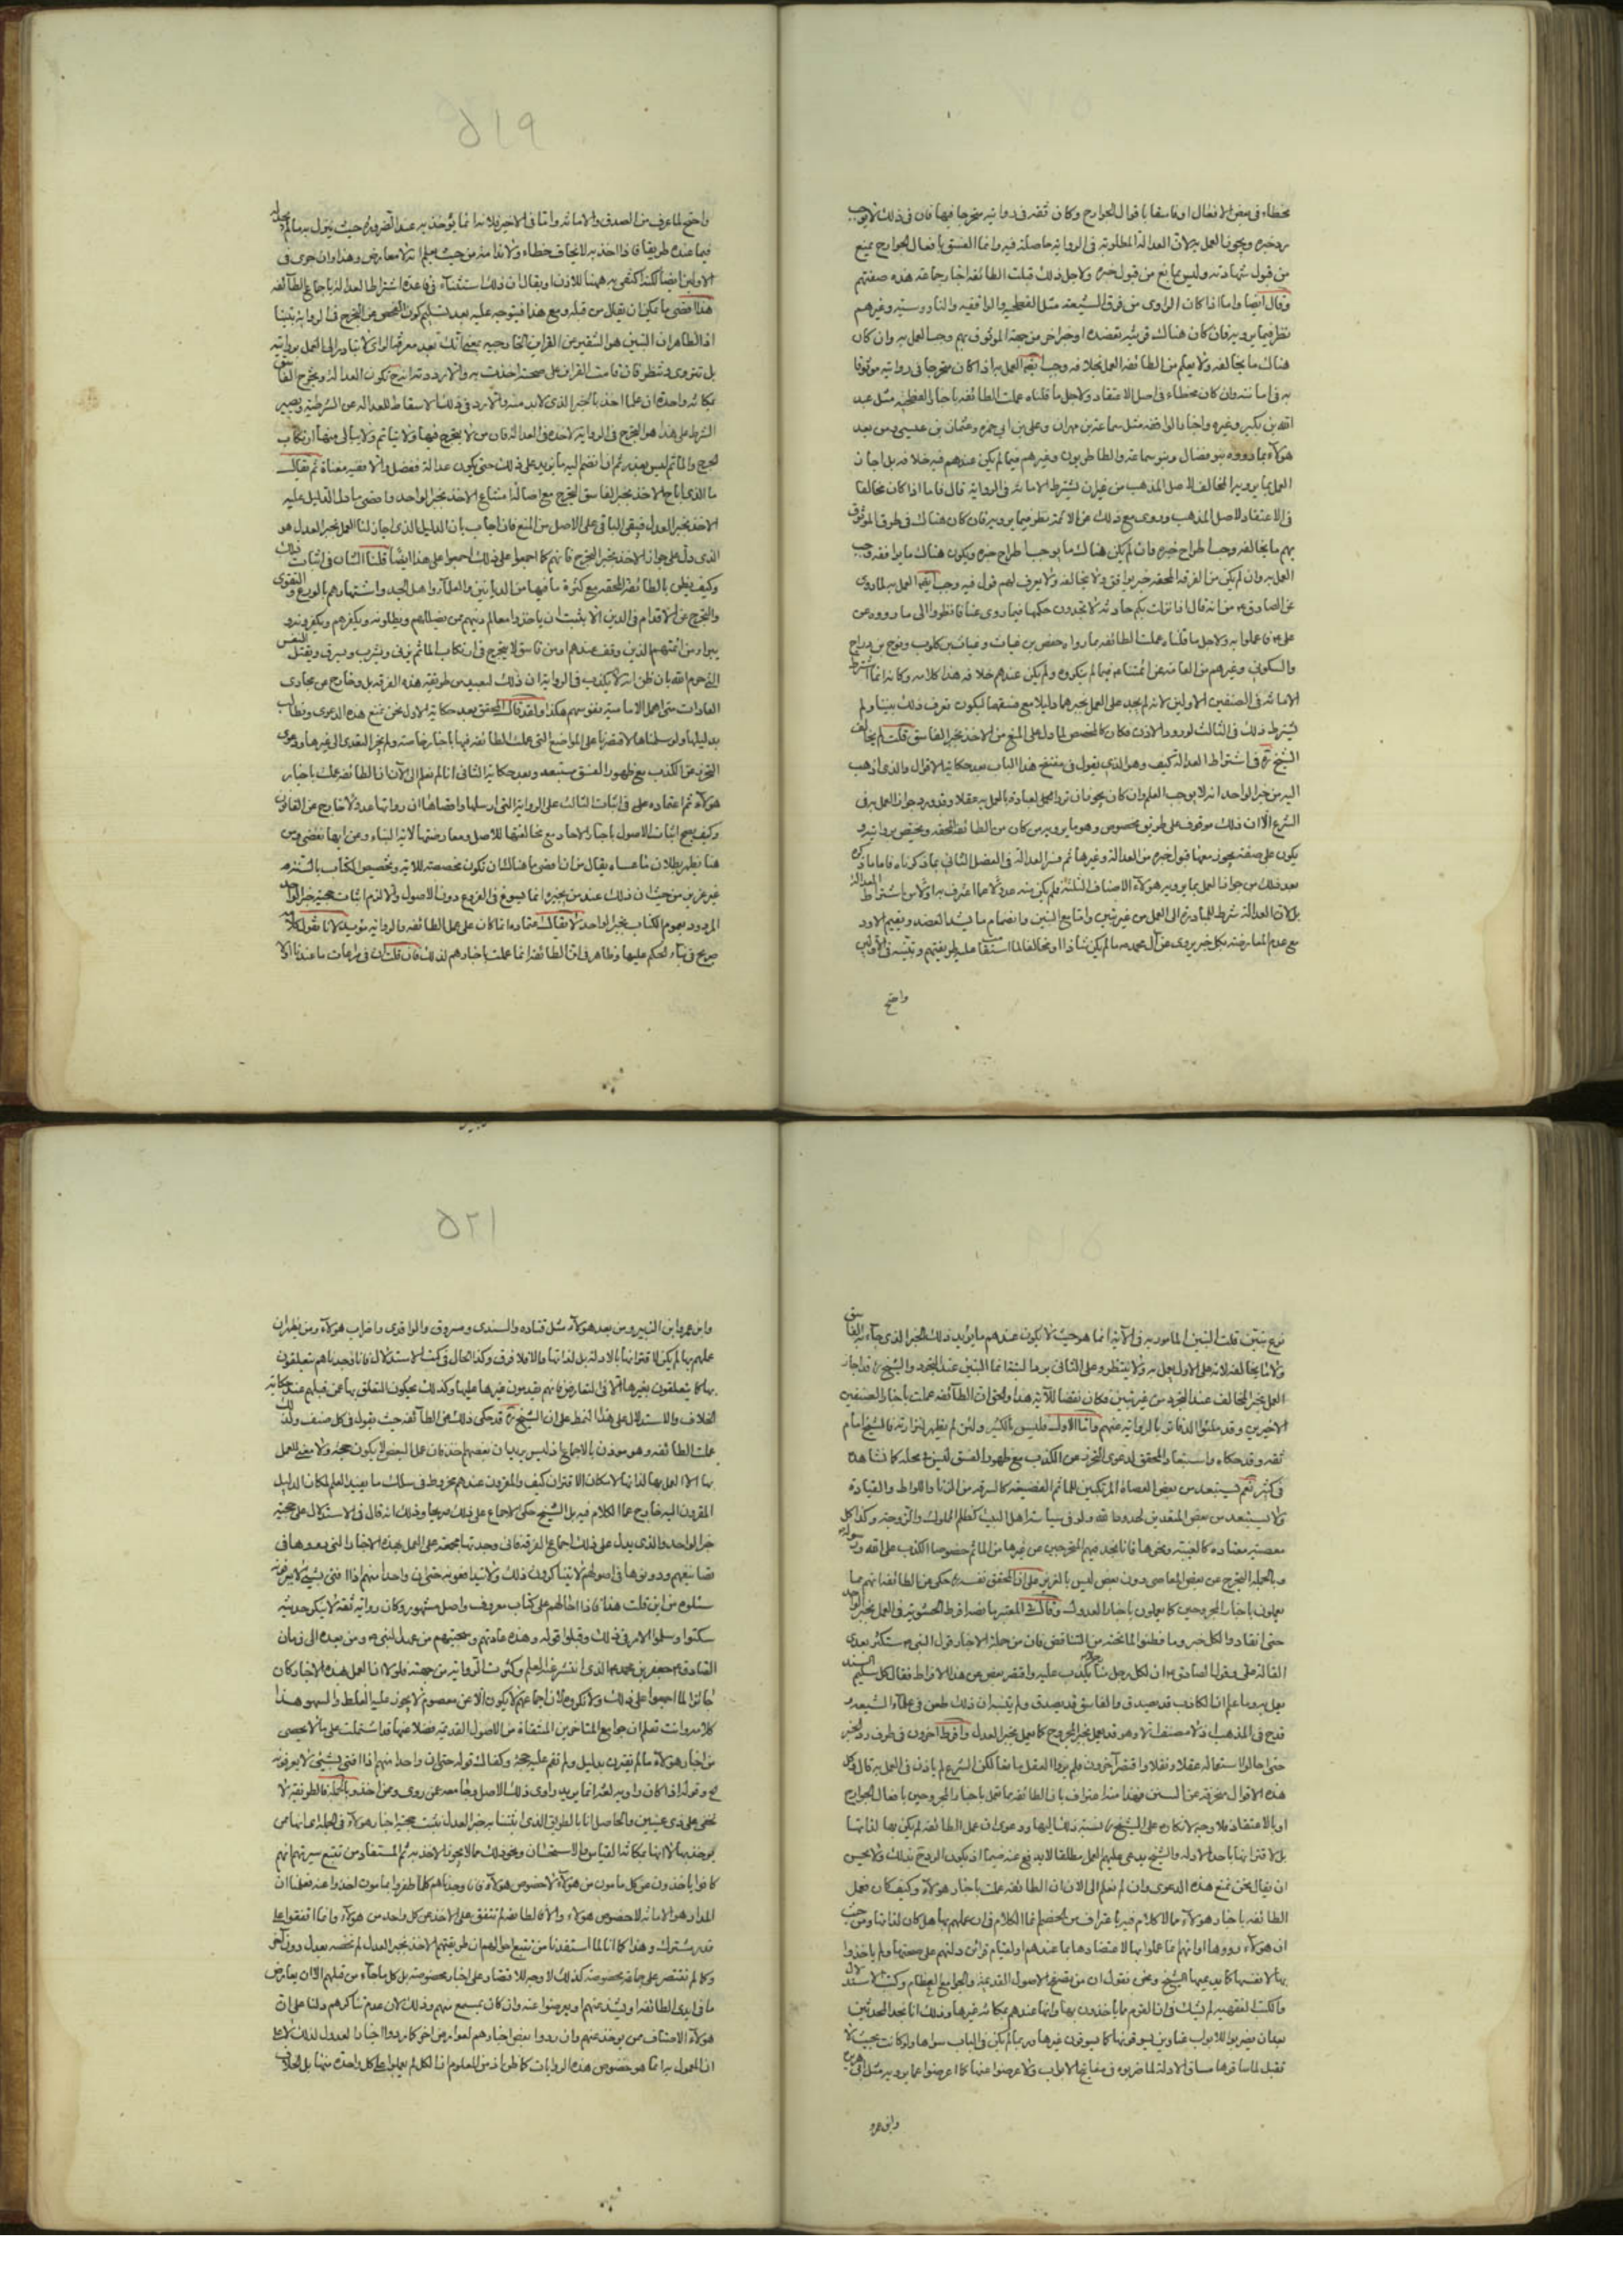 مخطاء فى بعض الافعال او فاسقا بافعال الجوارح وكان ثقه فى روايته متحرجا فيها فان ذلك لا يوجب
رد خبره ويجوز العمل به لان العدالة المطلوبة فى الرواية حاصلة فيه وانما الفسق بافعال الجوارح يمنع
من قبول شهادته وليس بمانع من قبول خبره ولاجل ذلك قبلت الطائفة اخبار جماعة هذه صفتهم
وقال ايضا واما اذا كان الراوى من فرق الشيعه مثل الفطحيه والواقفيه والناووسيه وغيرهم
نظر فيما يرويه فان كان هناك قرينه تعضده او خبر اخر من جهة الموثوق بهم وجب العمل به وان كان
هناك ما يخالفه ولا يعلم من الطائفه العمل بخلافه وجب ايضا العمل به اذا كان متحرجا فى روايته موثوقا
به فى امانته وان كان مخطاء فى اصل الاعتقاد ولاجل ما قلناه عملت الطائفه باخبار الفطحيه مثل عبد
الله بن بكير وغيره واخبار الواقفه مثل سماعه بن مهران وعلى بن ابى حمزه وعثمان بن عيسى ومن بعد
هولاء بما رووه بنو فضال وبنو سماعه والطاطريون وغيرهم فيما لم يكن عندهم فيه خلافه بل اجاز
العمل بما يرويه المخالف لاصل المذهب من غير ان يشترط الامانه فى الرواية قال فاما اذا كان مخالفا
فى الاعتقاد لاصل المذهب وروى مع ذلك عن الائمه نظر فيما يرويه فان كان هناك فى طرق الموثوق
بهم ما يخالفه وجب اطراح خبره وان لم يكن هناك ما يوجب اطراح خبره ويكون هناك ما يوافقه وجب
العمل به وان لم يكن من الفرقه المحقه خبر يوافق ولا يخالفه ولا يعرف لهم قول فيه وجب ايضا العمل به لما روى
عن الصادق انه قال اذا نزلت بكم حادثه لا تجدون حكمها فيما روى عنا فانظروا الى ما رووه عن
على فاعملوا به ولاجل ما قلناه عملت الطائفه بما رواه حفص بن غياث وغياث بن كلوب ونوح بن دراج
والسكونى وغيرهم من العامه عن ائمتنا فيما لم ينكروه ولم يكن عندهم خلافه هذا كلامه وكانه انما اشترط
الامانه فى الصنفين الاولين لانه لم يجد على العمل بخبرهما دليلا مع فسقهما ليكون ذلك تبينا ولم
يشترط ذلك فى الثالث لورود الاذن فكان كالمخصص لما دل على المنع من الاخذ بخبر الفاسق قلت لم يخالف
الشيخ فى اشتراط العدالة كيف وهو الذى يقول فى مفتتح هذا الباب بعد حكاية الاقوال والذى اذهب
اليه من خبر الواحد انه لا يوجب العلم وان كان يجوز ان ترد العبادة بالعمل به عقلا وقد ورد جواز العمل به فى
الشرع الا ان ذلك موقوف على طريق مخصوص وهو ما يرويه من كان من الطائفه المحقه ويختص بروايته و
يكون على صفة يجوز معها قبول خبره من العدالة وغيرها ثم فسر العدالة فى الفصل الثانى بما ذكرناه فاما ما ذكره
بعد ذلك من جواز العمل بما يرويه هؤلاء الاصناف الثلثة فلم يكن منه عدولا عما اعترف به اولا من اشتراط العدالة
بل لان العدالة شرط للمبادرة الى العمل من غير تبين واما مع التبين وانضمام ما يشد العضد ويقيم الاود
مع عدم المعارضة بكل خبر يروى عن آل محمد ما لم يكن شاذا او مخالفا لما استقامت عليه طريقتهم وتبينه فى الاولين
واضح
٥١٩
واضح لما عرف من الصدق والامانه واما فى الاخير فلانه انما يؤخذ به عند الضروره حيث يتول به ما لم يجد له
فيما عنده طريقا فاذا اخذ به لا نخاف خطاء ولا ندامة من حيث يعلم انه لا معارض وهذا وان جرى فى
الاولين ايضا لكنه اكتفى به ههنا للاذن او يقال ان ذلك استثناء فى قاعدة اشتراط العدالة باجماع الطائفه
هذا اقصى ما يمكن ان يقال من قبله ومع هذا فيتوجه عليه بعد تسليم كون الفحص عن التحرج فى الرواية تبينا
اذ الظاهر ان التبين هو التنقير عن القرائن الخارجيه بمعنى انك بعد معرفة الراوى لا تبادر الى العمل بروايته
بل تتروى وتنظر فان قامت القرائن على صحته اخذت به والا رددته انه ح تكون العدالة وتحرج الفاسق
بمكانه واحدة ان علما اخذ بالخبر الذى لابد منه والا رد فى ذلك الاسقاط للعدالة عن الشرطيه ويصير
الشرط على هذا هو التحرج فى الرواية لاخذه فى العدالة فان من لا يتحرج فيها ولا يتاثم ولا يبالى منها ارتكاب
المحرج والماثم ليس بعدل ثم اذا انضم اليه ما يزيد على ذلك حتى يكون عدالة ففضل والا ففيه مغناة ثم يقال
ما الذى اباح الاخذ بخبر الفاسق المتحرج مع اصالة امتناع الاخذ بخبر الواحد واقصى ما دل الدليل عليه
الاخذ بخبر العدل فيبقى الباقى على الاصل من المنع فان اجاب بان الدليل الذى اجاز لنا العمل بخبر العدل هو
الذى دل على جواز الاخذ بخبر المتحرج فانهم كما اجمعوا على ذلك اجمعوا على هذا ايضا قلنا الشان فى اثبات ذلك
وكيف يظن بالطائفه المحقه مع كثرة ما فيها من الربانيين والعلماء واهل الجد واشتهارهم بالورع والتقوى
والتحرج عن الاقدام فى الدين الا بثبت ان ياخذوا معالم دينهم ممن يضللهم ويكفرهم
يبراء من ائمتهم الذين وقف عندهم او من فاسق لا يتحرج فى ارتكاب الماثم يزنى ويشرب ويسرق ويقتل النفس
التى حرم الله بان يظن انه لا يكذب فى الرواية ان ذلك لبعيد من طريقة هذه الفرقه بل وخارج عن مجارى
العادات هكذا ولقد قال المحقق بعد حكاية الاول نحن نمنع هذه الدعوى ونطالب
بدليلها ولو سلمناها لاقتصرنا على المواضع التى عملت الطائفه فيها باخبار خاصه ولم يجز التعدى الى غيرها ودعوى
التحرز عن الكذب مع ظهور الفسق مستبعد وبعد حكاية الثانى انا لم نعلم الى الآن ان الطائفه عملت باخبار
هؤلاء ثم اعتماده على فى اثبات الثالث على الرواية التى ارسلها وان رواتها عدولا خارج عن القانون
وكيف يصح اثبات الاصول باخبار الاحاد مع مخالفتها للاصل ومعارضتها لاية النباء وغيرها
هنا يظهر بطلان ما عساه يقال من ان اقصى ما هناك ان تكون مخصصة للاية وتخصيص الكتاب بالسنة
غير عزيز من حيث ان ذلك عند من يجيزه انما يسوغ فى الفروع دون الاصول والا لزم اثبات حجية خبر الواحد
المردود بعموم الكتاب بخبر الواحد لا يقال اعتماده انما كان على عمل الطائفه والرواية مؤيدة لانا نقول كلامه
صريح فى بناء الحكم عليها وظاهر فى ان الطائفه انما عملت باخبارهم لذلك فان قلت ان فى مراعات ما عندنا اولا
نوع تبين قلت التبين المامور به فى الآية انما هو حيث لا يكون عندهم ما يؤيد ذلك الخبر الذى جاء به الفاسق
ولا ما يخالفه لانه على الاول يعمل به ولا ينتظر وعلى الثانى يرد ما لبثه انما التبين عند التجرد والشيخ قد اجاز
العمل بخبر المخالف عند التجرد من غير تبين فكان نقضا للآية هذا ولنحو ان الطائفه عملت باخبار الصنفين
الاخيرين وقد ملئوا الدفاتر بالرواية عنهم واما الاول فليس بالكثير ولئن لم يظهر لنزارته فالشيخ امام
ثقه وقد حكاه واستبعاد المحقق لدعوى التحرز عن الكذب مع ظهور الفسق ليس فى محله كما نشاهده
فى كثير نعم يستبعد من بعض العصاة المرتكبين للماثم الفضيعه كالسرقه من الزنا واللواط والقيادة
ولا يستبعد من بعض المتعدين لحدود الله ولو فى سياسة اهل البيت كظلم المملوك والزوجة وكذا كل
معصية معتادة كالغيبه ونحوها فانا نجد فيهم المتحرجين عن غيرها من الماثم خصوصا الكذب على الله ورسوله
وبالجملة التحرج عن بعض المعاصى دون بعض ليس بالعزيز على ان المحقق نفسه حكى عن الطائفه انهم ربما
يعملون باخبار المجروحين كما يعملون باخبار العدول وقال فى المعتبر ما نصه افرط الحشوية فى العمل بخبر الواحد
حتى انقادوا لكل خبر وما فطنوا لما تحته من التناقض فان من جملة الاخبار قول النبى ستكثر بعدى
القالة على وقول الصادق ان لكل رجل منا رجلا يكذب عليه واقتصر بعض عن هذا الافراط فقال كل سليم السند
يعمل به وما علم ان الكاذب قد يصدق والفاسق قد يصدق ولم يتنبه ان ذلك طعن فى علماء الشيعه و
قدح فى المذهب اذ لا مصنف الا وهو قد يعمل بخبر المجروح كما يعمل بخبر العدل وافرط آخرون فى طرف رد الخبر
حتى احالوا استعماله عقلا ونقلا واقتصر آخرون فلم يروا العقل مانعا لكن الشرع لم ياذن فى العمل به قال وكل
هذه الاقوال منحرفه عن السنن فهذا منه اعتراف بان الطائفه ربما تعمل باخبار المجروحين بافعال الجوارح
او بالاعتقاد فلا وجه لانكاره على الشيخ نسبة ذلك اليها ودعوى ان عمل الطائفه لم يكن بها لذاتها
بل لاقترانها باحد الادله والشيخ يدعى عليهم العمل مطلقا لا يدفع عنه ضيما اذ يكون الرد ح بذلك ولا يحسن
ان يقال نحن نمنع هذه الدعوى وان لم نعلم الى الان ان الطائفه عملت باخبار هؤلاء وكيف كان فعمل
الطائفه باخبار هؤلاء مما لا كلام فيه باعتراف من الخصم انما الكلام فى ان عملهم بها هل كان لذاتها ومن حيث
ان هؤلاء رووها او انهم انما عملوا بها لاعتضادها بما عندهم او لقيام قرائن دلتهم على صحتها ولم ياخذوا
بها لانفسها كما يدعيها الشيخ ونحن نقول ان من يتصفح الاصول القديمة والجوامع العظام وكتب الاستدلال
والكتب الفقهيه لم يشك فى ان القوم كما ياخذون بها وانها عندهم بمكانة غيرها وذلك انا نجد المحدثين
بعد ان يضربوا للابواب عناوين يسوقونها كما يسوقون غيرها وربما لم يكن فى الباب سواها ولو كانت بحيث لا
تقبل لما ساقوها مساق الادلة لما ضربوه فى مفاتيح الابواب ولاعرضوا عنها كما اعرضوا عما يرويه مثل ابى هريرة
وابن عمر
٥٢١
وابن عمر وابن الزبير ومن بعد هؤلاء مثل قتاده والسندى ومسروق والواقدى واضراب هؤلاء ومن يظن ان
عملهم بها لم يكن لاقترانها بالادلة بل لذاتها والا فلا فرق وكذا الحال فى كتب الاستدلال فانا نجدهم يتعلقون
بها كما يتعلقون بغيرها الا فى التعارض فانهم يقدمون غيرها عليها وكذلك يحكون التعلق بها عمن قبلهم عند حكاية
الخلاف والاستدلال على هذا النمط على ان الشيخ قد حكى ذلك عن الطائفه حيث يقول فى كل صنف ولذلك
عملت الطائفه وهو موذن بالاجماع اذ ليس يريد ان بعضهم اخذ فان عمل البعض لا يكون حجه ولا معنى للعمل
بها الا العمل بها لذاتها لامكان الاقتران كيف والمقرون عندهم مخروط فى سلك ما يفيد العلم لمكان الدليل
المقرون اليه خارج عما الكلام فيه بل الشيخ حكى الاجماع على ذلك صريحا وذلك انه قال فى الاستدلال على حجية
خبر الواحد والذى يدل على ذلك اجماع الفرقه فانى وجدتها مجمعه على العمل بهذه الاخبار التى رووها فى
تصانيفهم ودونوها فى اصولهم لا يتناكرون ذلك ولا يتدافعونه حتى ان واحدا منهم اذا افتى بشىء لا يعرفونه
سئلوه من اين قلت هذا فاذا احالهم على كتاب معروف واصل مشهور وكان راويه ثقه لا ينكر حديثه
سكتوا وسلموا الامر فى ذلك وقبلوا قوله وهذه عادتهم وسجيتهم من عهد النبى ومن بعده الى زمان
الصادق جعفر بن محمد الذى انتشر عنه العلم وكثرت الرواية من جهته فلولا ان العمل بهذه الاخبار كان
جائزا لما اجمعوا على ذلك ولانكروه لان اجماعهم لا يكون الا عن معصوم لا يجوز عليه الغلط والسهو هذا
كلامه وانت تعلم ان جوامع المتاخرين المنتقاة من الاصول القديمه فضلا عنها قد اشتملت على ما لا يحصى
من اخبار هؤلاء ما لم يقترن بدليل ولم تقم عليه حجة وكفاك قوله حتى ان واحدا منهم اذا افتى بشىء لا يعرفونه
الخ وقوله اذا كان راويه ثقه انما يريد راوى ذلك الاصل وجامعه عمن روى وممن اخذ وبالجملة فالطريقة لا
تخفى على ذى عينين والحاصل انا بالطريق الذى اثبتنا به خبر العدل نثبت حجية اخبار هؤلاء فى الجملة اى انها من
يؤخذ بها لا انها بمكانة القياس والاستحسان ونحو ذلك مما لا يجوز الاخذ به ثم المستفاد من تتبع سيرتهم انهم
كانوا ياخذون عن كل مامون من هؤلاء لا خصوص هؤلاء فانا وجدناهم كلما ظفروا بمامون اخذوا عنه فعلمنا ان
المدار هو الامانه لا خصوص هؤلاء والا فالطائفه لم تتفق على الاخذ عن كل واحد من هؤلاء وانما اتفقوا على
قدر مشترك وهذا كما انا لما استفدنا من تتبع احوالهم ان طريقتهم الاخذ بخبر العدل لم نخصه بعدل دون آخر
وكما لم نقتصر على جماعة مخصوصة كذلك لا وجه للاقتصار على اخبار مخصوصة بل كل ما جاء من قبلهم الا ان يعارض
ما فى ايدى الطائفه او يشذ عنهم او يعرضوا عنه وان كان بمسمع منهم وذلك لان عدم تناكرهم دلنا على ان
هؤلاء الاصناف ممن يؤخذ عنهم وان ردوا بعض اخبارهم لعوارض اخر كما ردوا اخبار العدول لذلك لا على
ان المعمول به انما هو خصوص هذه الروايات كما ظن اذ من المعلوم ان الكل لم يعملوا على كل واحدة منها بل الخلاف